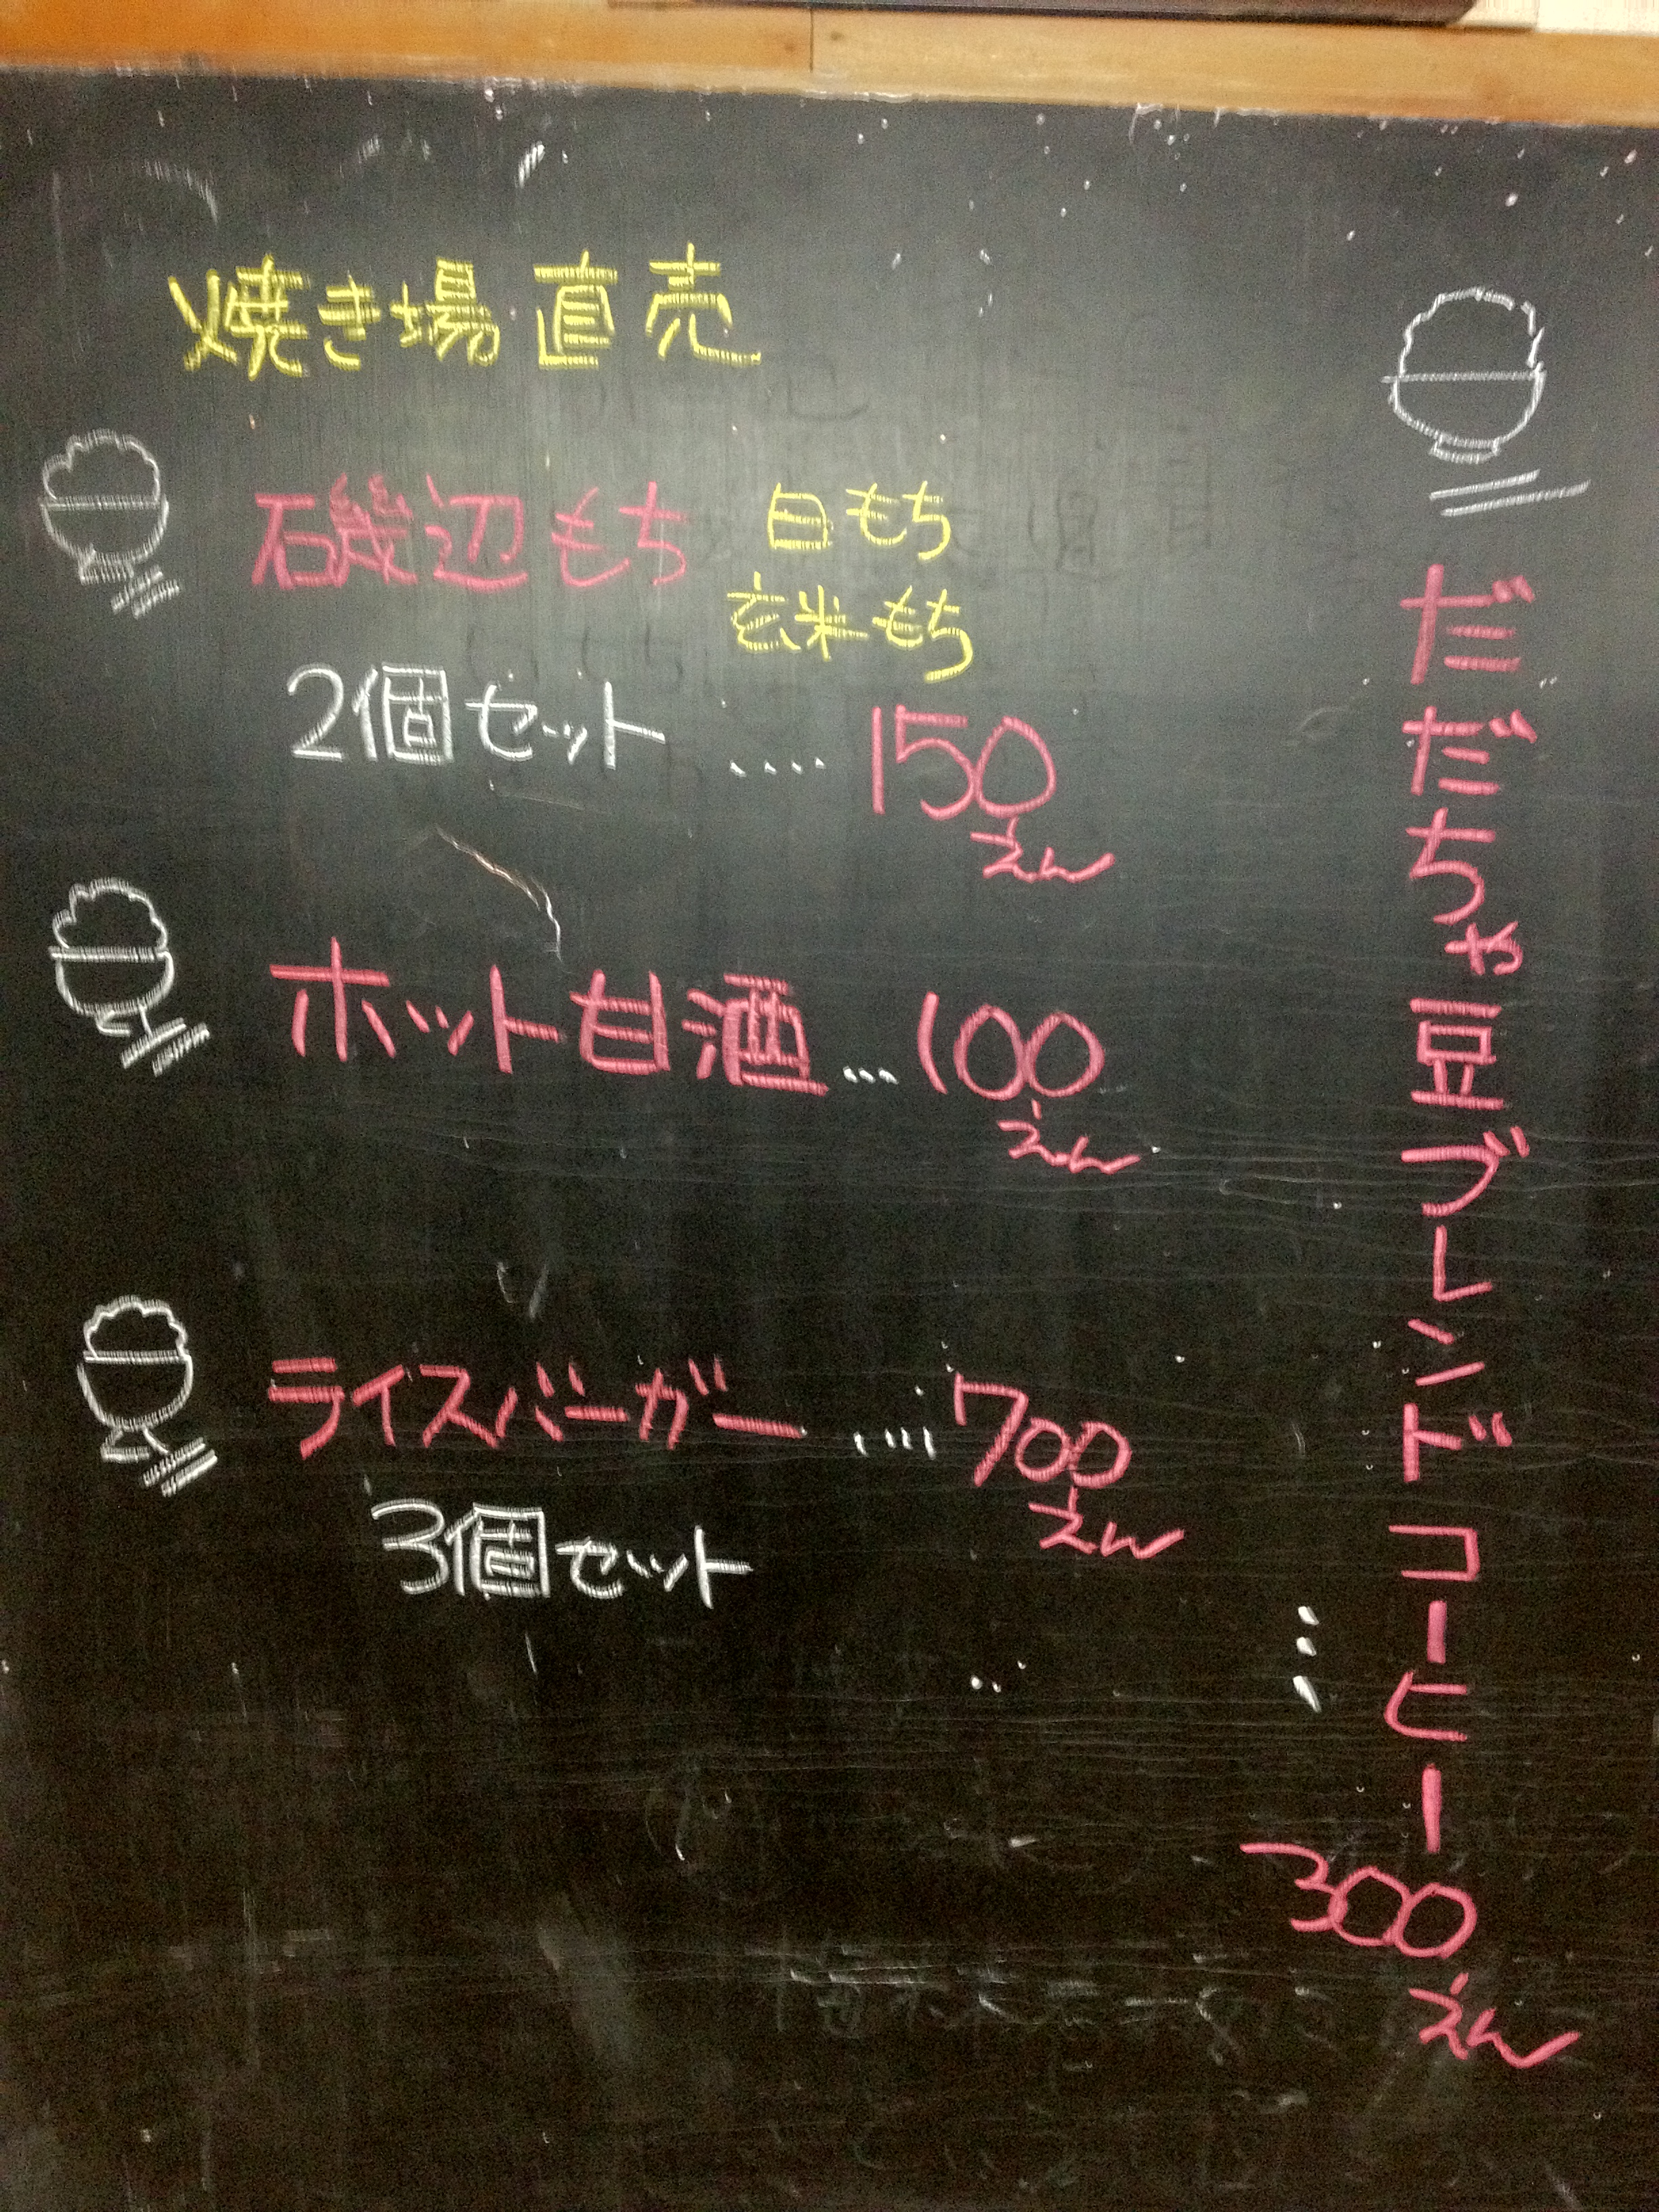 焼き場直売
磯辺もち
白もち
玄米もち
2個セット ‥‥ 150えん
ホット甘酒 … 100えん
ライスバーガー ‥‥ 700えん
3個セット
だだちゃ豆ブレンドコーヒー … 300えん